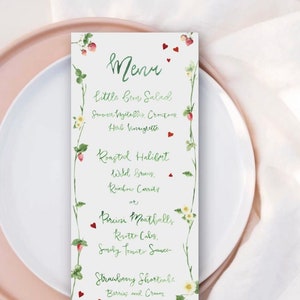 Menu
Little Gem Salad
Summer Vegetables, Croutons
Herb Vinaigrette
Roasted Halibut
Wild Greens
Rainbow Carrots
or
Porcini Meatballs
Risotto Cakes,
Smoky Tomato Sauce
Strawberry Shortcake
Berries and Cream